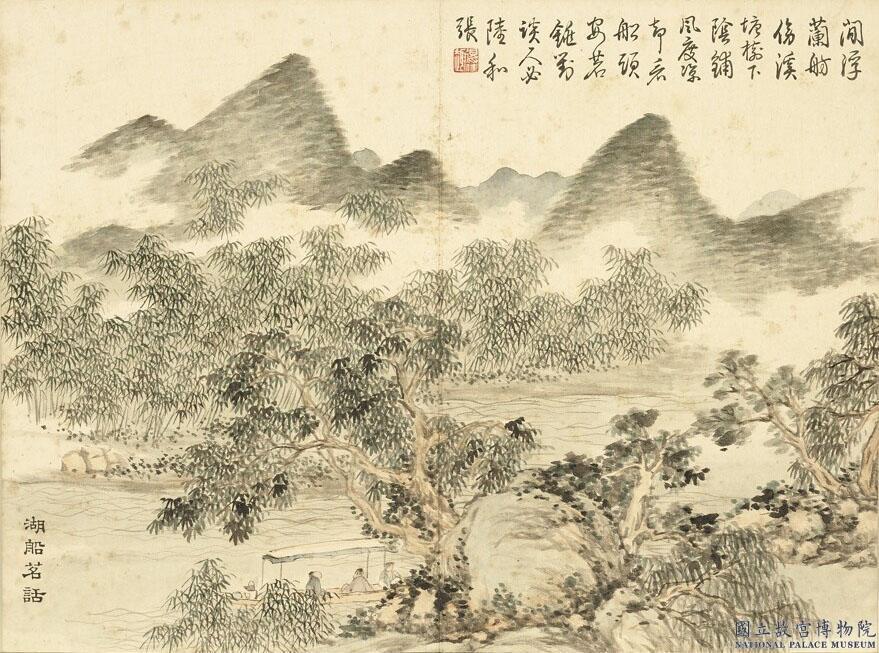 閒浮
蘭舫
傍溪
塘樹下
陰鋪
風度涼
却看
船頭
安茗
對
談人必
陸和
張
湖船茗話
國立故宮博物院
NATIONAL PALACE MUSEUM